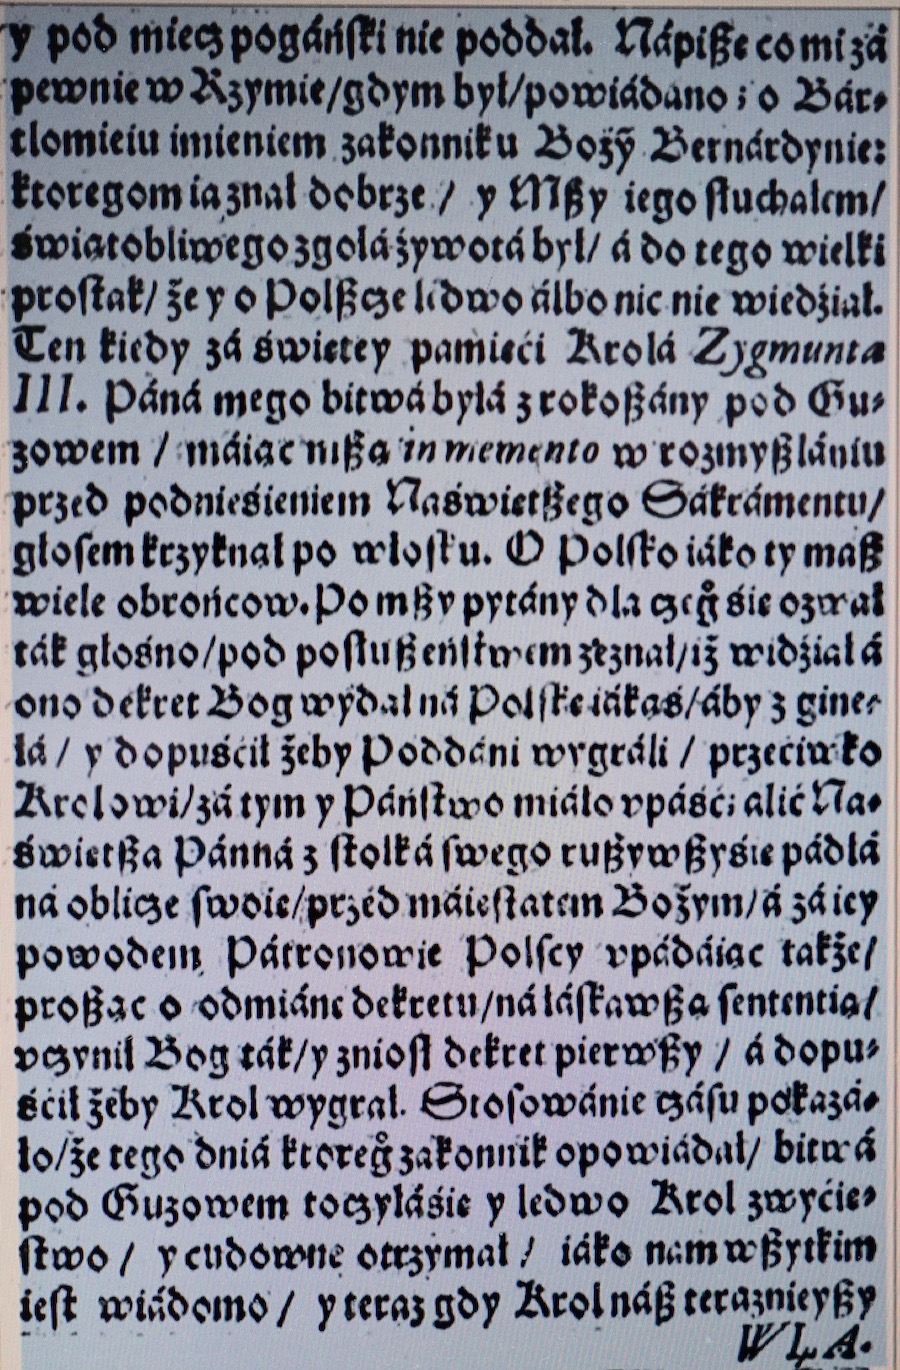 y pod miecz pogáński nie poddał. Nápiße co mi zá
pewnie w Rzymie/gdym był/powiádano; o Bár-
tlomieiu imieniem zakonniku Bożỹ Bernárdynie:
ktoregom ia znał dobrze / y Mßy iego słuchałem/
świątobliwego zgołá żywotá był/ á do tego wielki
prostak/ że y o Polßcze ledwo álbo nic nie wiedźiał.
Ten kiedy zá świętey pamięći Krolá Zygmunta
III. Páná mego bitwá byłá z rokoßány pod Gu-
zowem / máiąc mßą in memento w rozmyßlániu
przed podnieśieniem Naświętßego Sákrámentu/
głosem krzyknął po włosku. O Polsko iáko ty maß
wiele obrońcow. Po mßy pytány dla czeg̊ śię ozwał
ták głośno/pod posłußeństwem zeznał/iż widźiał á
ono dekret Bog wydał ná Polskę iákąś/áby zginę-
łá / y dopuśćił żeby Poddáni wygráli / przećiwko
Krolowi/zá tym y Páństwo miáło vpáść; alić Na-
świętßa Pánná z stołká swego rußywßyśię pádłá
ná oblicze swoie/przed máiestatem Bożym/á zá iey
powodem Pátronowie Polscy vpádáiąc także/
proßąc o odmiánę dekretu/ná łáskawßą sententią/
vczynił Bog ták/y zniosł dekret pierwßy / á dopu-
śćił żeby Krol wygrał. Stosowánie czásu pokazá-
ło/że tego dniá ktoreg̊ zakonnik opowiádał/ bitwá
pod Guzowem toczyłáśię y ledwo Krol zwyćię-
stwo / y cudowne otrzymał / iáko nam wßytkim
iest wiádomo / y teraz gdy Krol náß terazniejßy
WŁA-